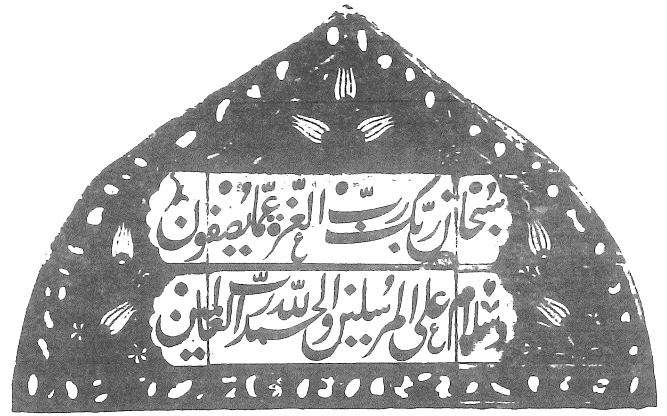 سُبْحَانَ رَبِّكَ رَبِّ الْعِزَّةِ عَمَّا يَصِفُونَ
وَسَلَامٌ عَلَى الْمُرْسَلِينَ وَالْحَمْدُ لِلَّهِ رَبِّ الْعَالَمِينَ